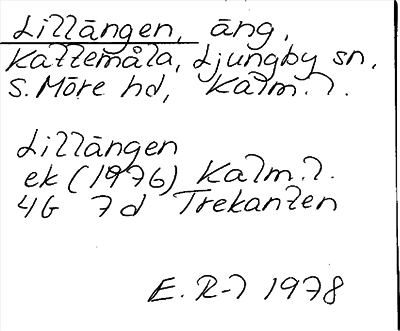 Lillängen, äng,
Kattemåla, Ljungby sn,
S. Möre hd, Kalm. l.
Lillängen
ek (1976) Kalm. l.
4G 7d Trekanten
E. R-l 1978